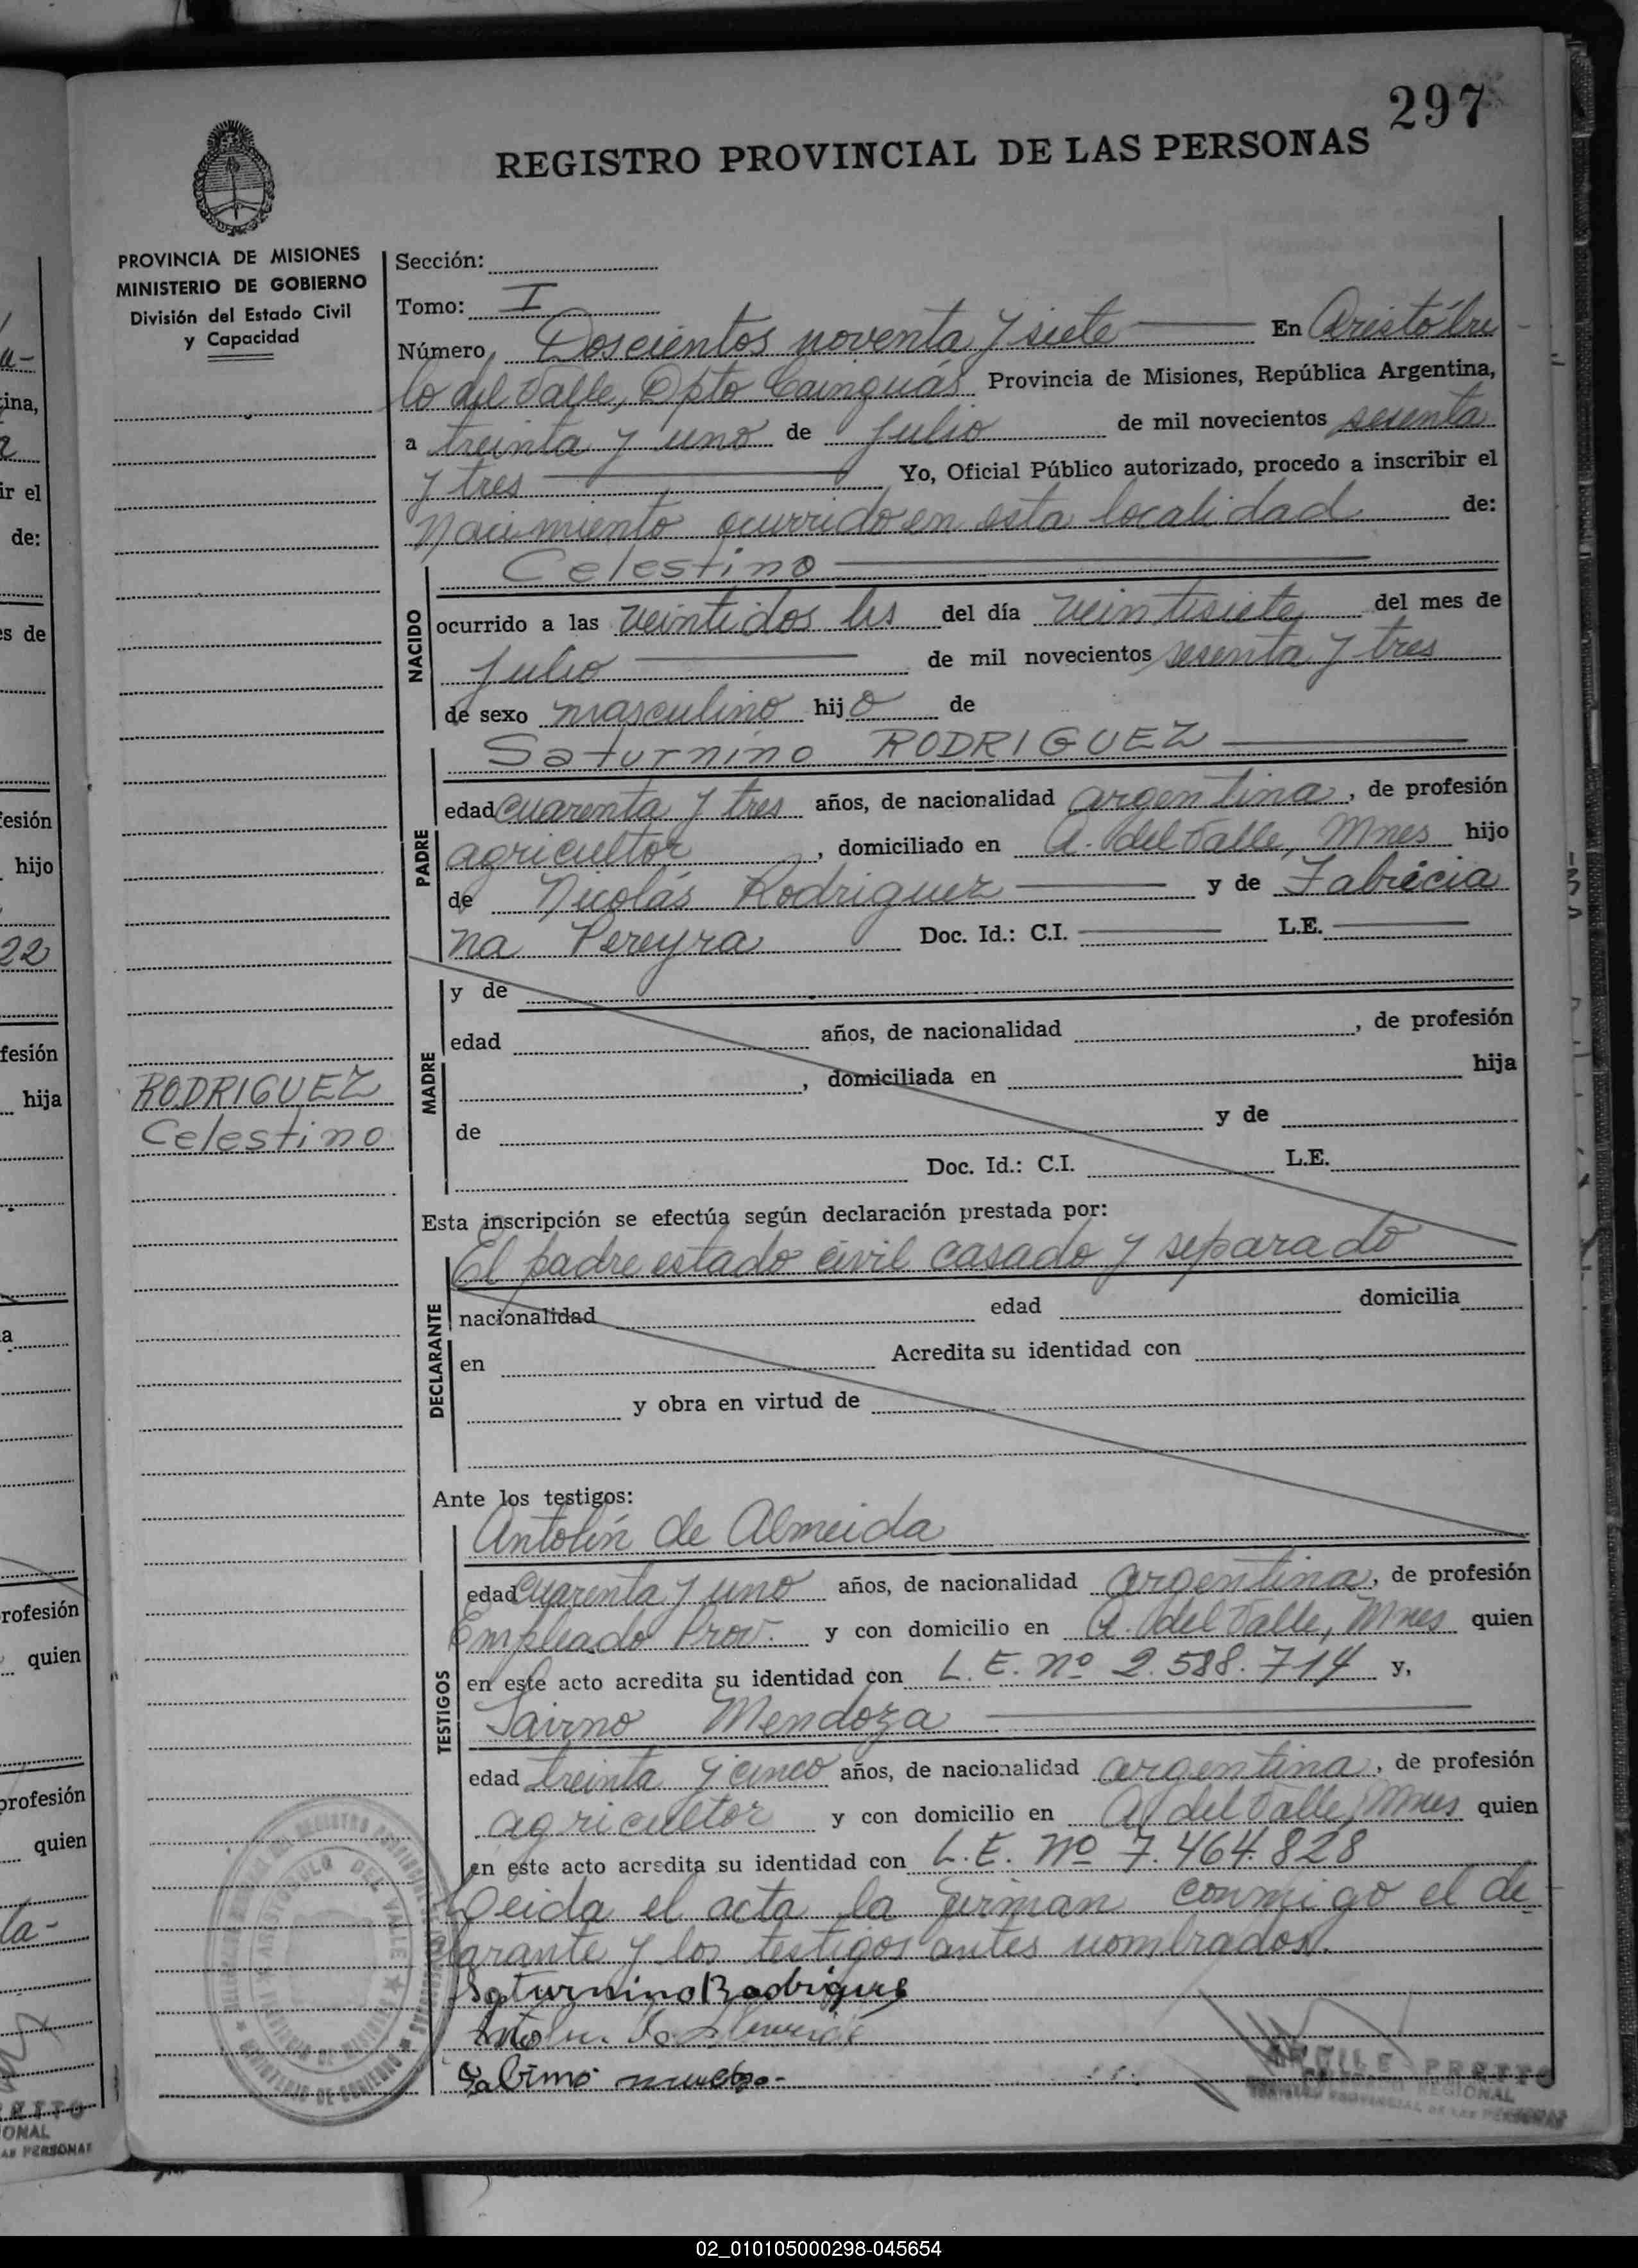 297
REGISTRO PROVINCIAL DE LAS PERSONAS
PROVINCIA DE MISIONES
MINISTERIO DE GOBIERNO
División del Estado Civil
y Capacidad
Sección:
Tomo: I
Número Doscientos noventa y siete En Aristóbu
lo del Valle, Dpto Cainguás Provincia de Misiones, República Argentina,
a treinta y uno de Julio de mil novecientos sesenta
y tres Yo, Oficial Público autorizado, procedo a inscribir el
Nacimiento ocurrido en esta localidad de:
NACIDO
Celestino
ocurrido a las veintidos hs del día veintisiete del mes de
Julio de mil novecientos sesenta y tres
de sexo masculino hijo de
PADRE
Saturnino RODRIGUEZ
edad cuarenta y tres años, de nacionalidad argentina, de profesión
agricultor, domiciliado en A. del Valle, Mnes hijo
de Nicolás Rodriguez y de Fabricia
na Pereyra Doc. Id.: C.I. L.E.
MADRE
y de
edad años, de nacionalidad , de profesión
, domiciliada en hija
de y de
Doc. Id.: C.I. L.E.
RODRIGUEZ
Celestino
Esta inscripción se efectúa según declaración prestada por:
DECLARANTE
El padre estado civil casado y separado
nacionalidad edad domicilia
en Acredita su identidad con
y obra en virtud de
Ante los testigos:
TESTIGOS
Antolín de Almeida
edad cuarenta y uno años, de nacionalidad argentina, de profesión
Empleado Prov. y con domicilio en A. del Valle, Mnes quien
en este acto acredita su identidad con L. E. nº 2.588.714 y,
Mendoza
edad treinta y cinco años, de nacionalidad argentina, de profesión
agricultor y con domicilio en A. del Valle, Mnes quien
en este acto acredita su identidad con L. E. Nº 7.464.828
Leida el acta la firman conmigo el de
clarante y los testigos antes nombrados.
Saturnino Rodrigues
PRETTO
REGIONAL
02_010105000298-045654